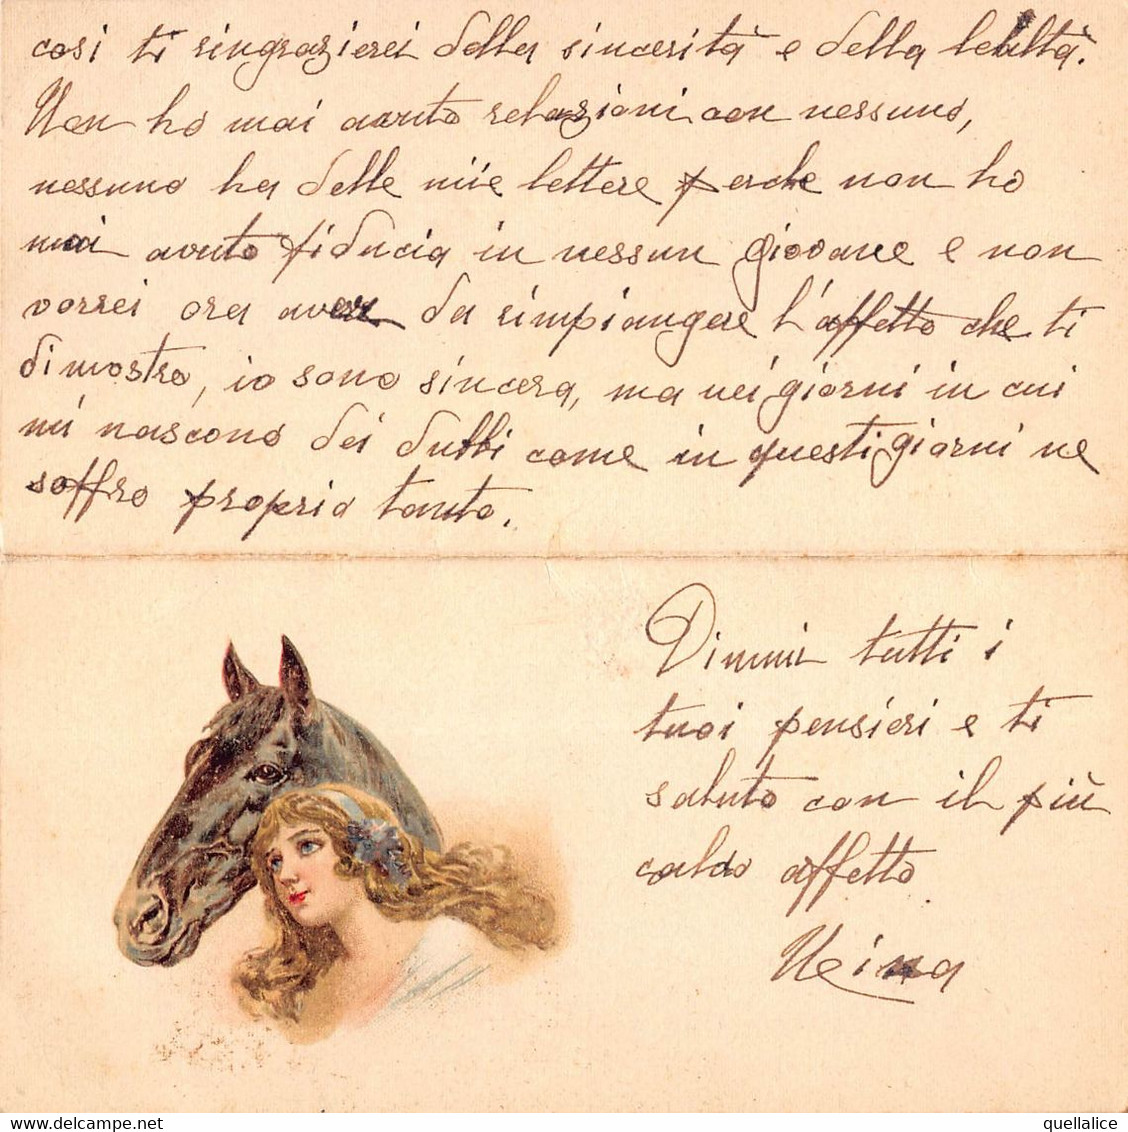 cosi ti ringrazierei della sincerità e della lealtà.
Non ho mai avuto relazioni con nessuno,
nessuno ha delle mie lettere perche non ho
mai avuto fiducia in nessun giovane e non
vorrei ora aver da rimpiangere l'affetto che ti
dimostro, io sono sincera, ma nei giorni in cui
mi nascono dei dubbi come in questi giorni ne
soffro proprio tanto.
Dimmi tutti i
tuoi pensieri e ti
saluto con il più
caldo affetto
Neina
© Delcampe.net
quellalice